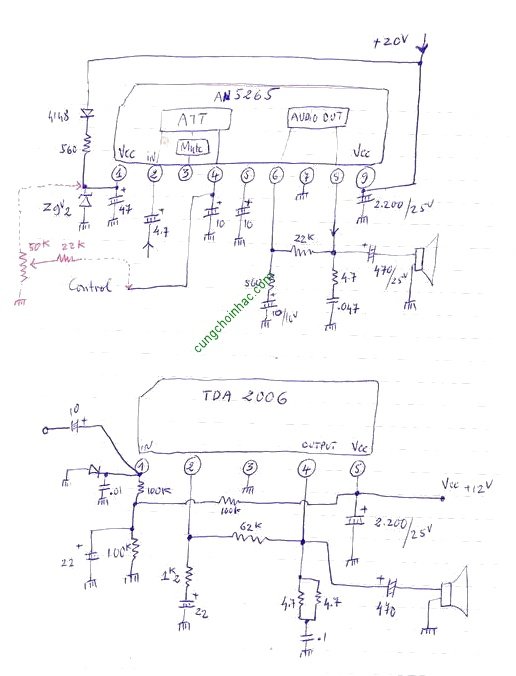 +20V
AN5265
4148
ATT
AUDIO OUT
560
Mute
Vcc
IN
Vcc
1
2
3
4
5
6
7
8
9
Z9V2
47
4.7
10
10
2.200/25V
50K
22K
22K
470/25V
Control
4.7
.047
10/16V
cungchoinhac.com
TDA 2006
10
IN
OUTPUT
Vcc
1
2
3
4
5
.01
100K
100K
Vcc +12V
62K
2.200/25V
22
100K
1K2
22
4.7
4.7
470
.1